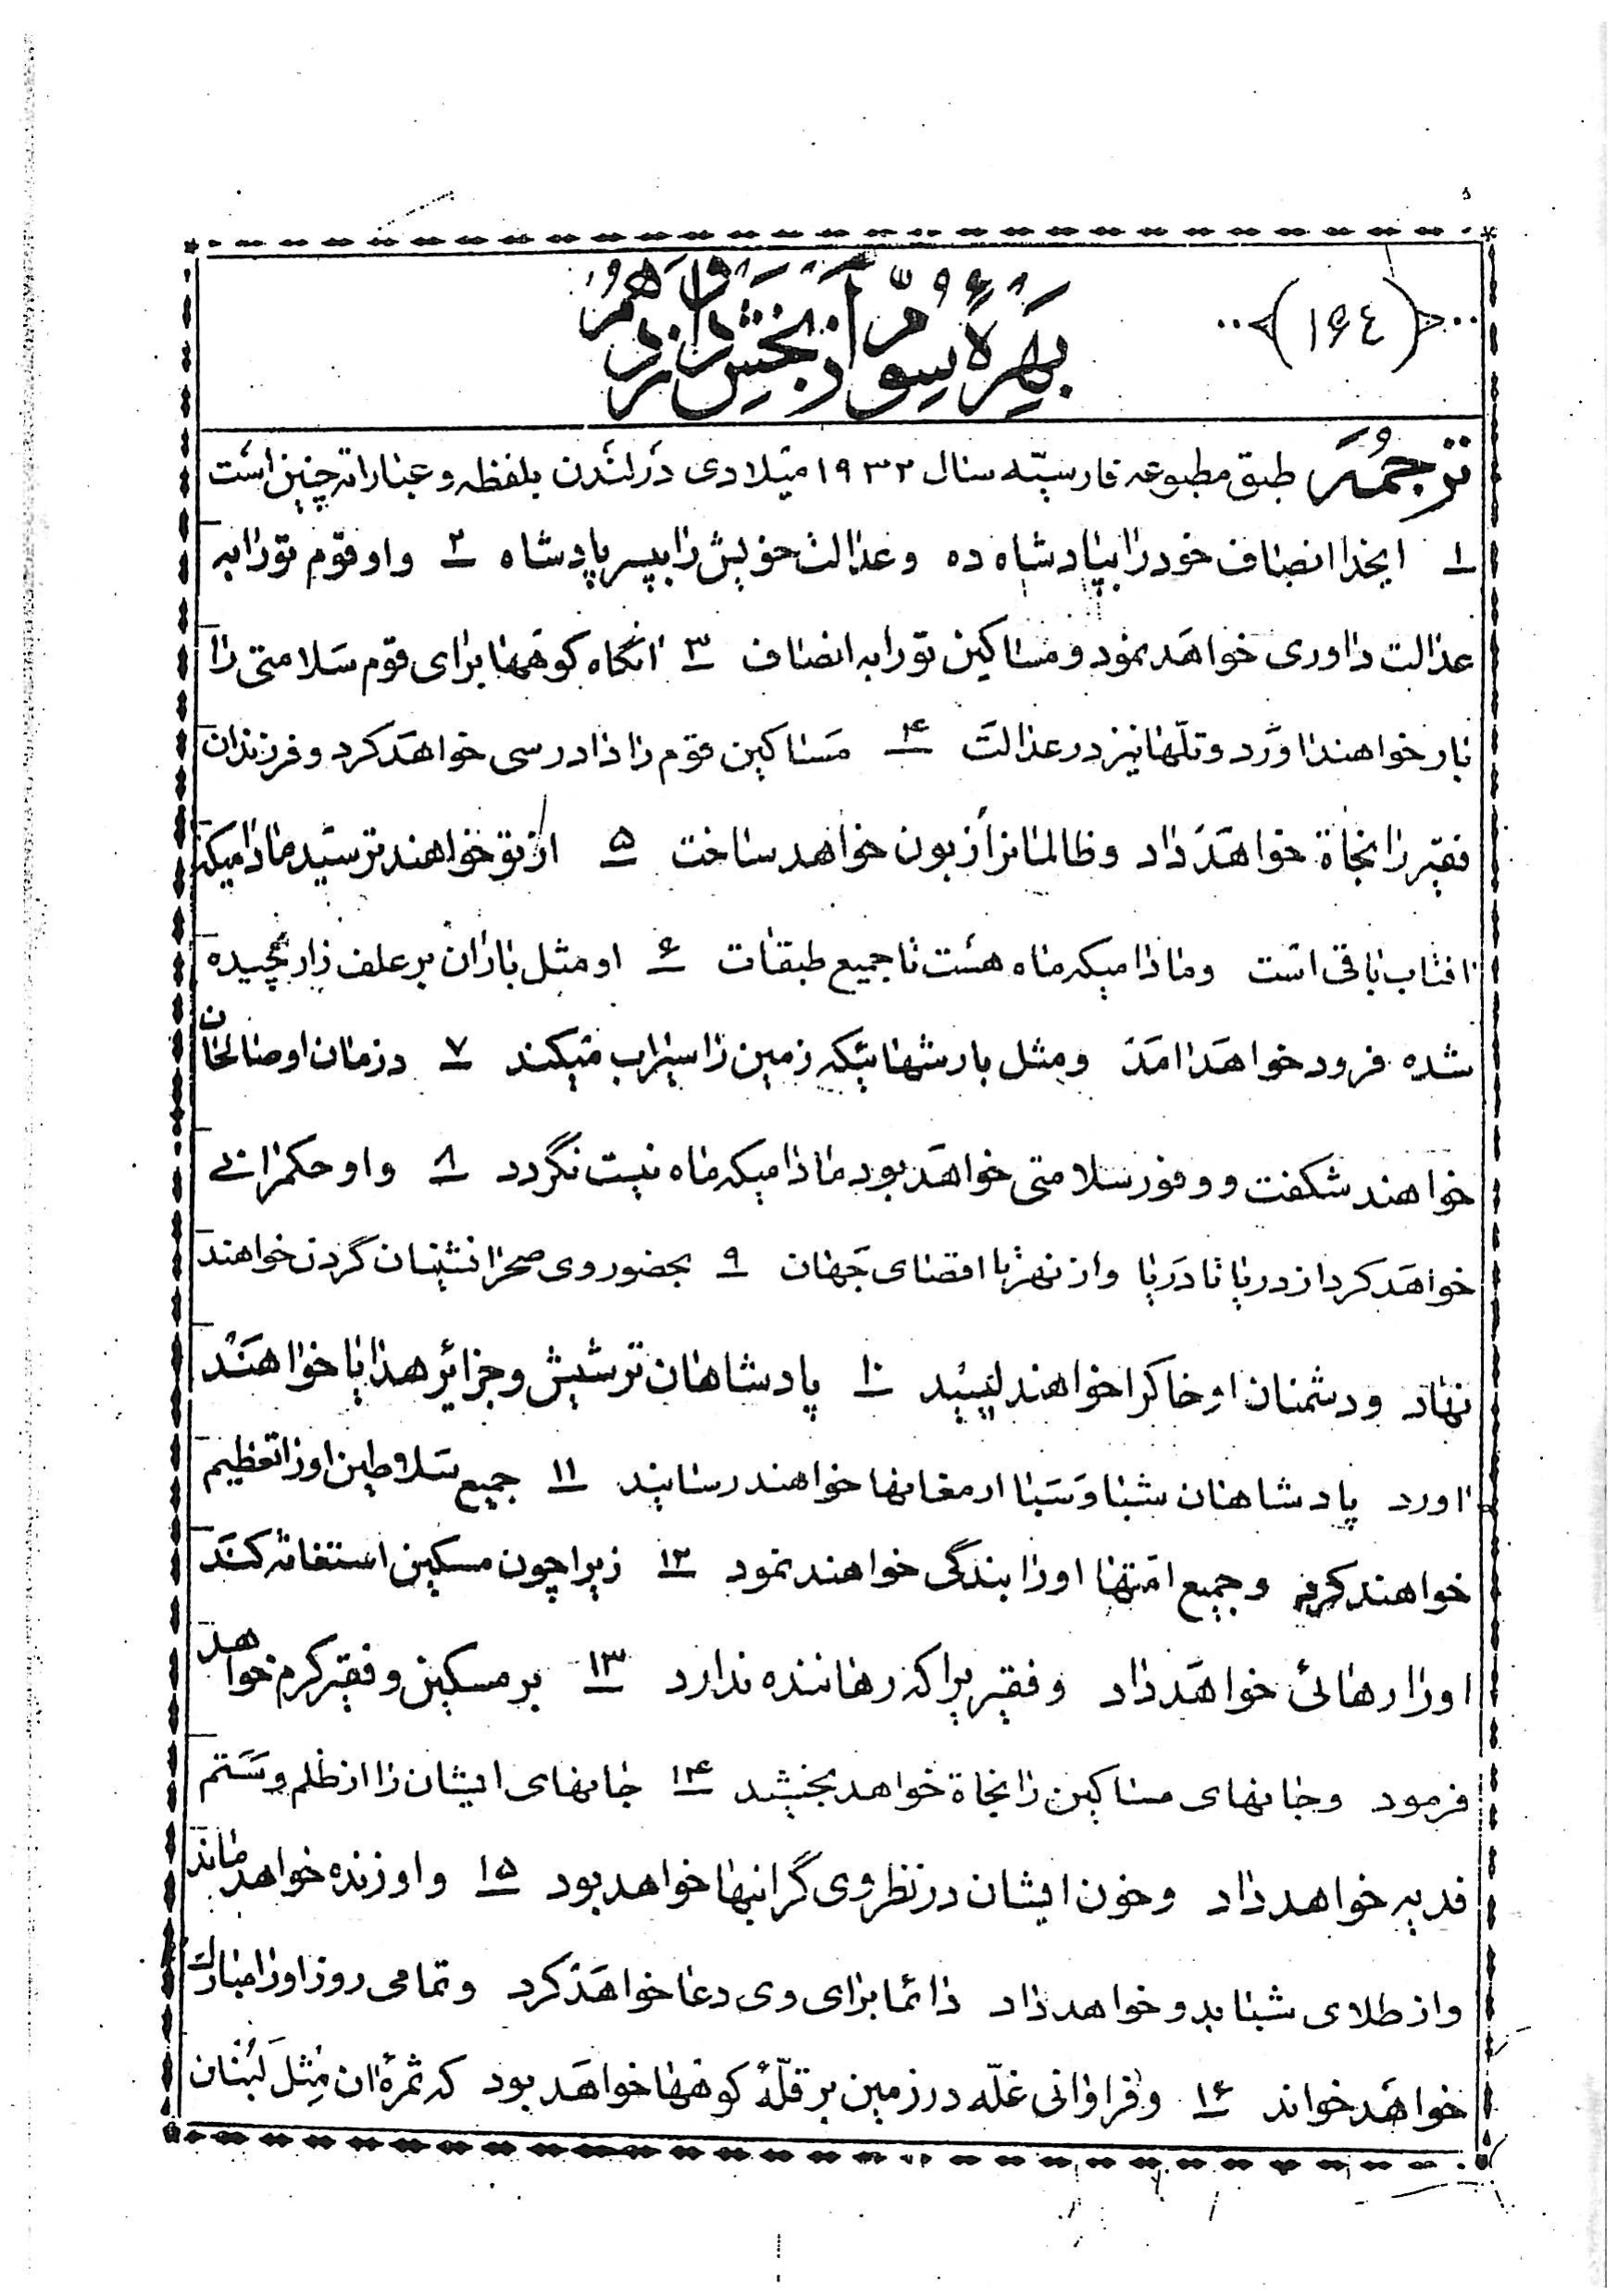 ﴿۱۶۴﴾
بهرهٔ سوّم از بخش یازدهم
ترجمه طبق مطبوعه فارسیّه سال ۱۹۳۲ میلادی در لندن بلفظه و عباراته چنین است
۱ ایخدا انصاف خود را بپادشاه ده و عدالت خویش را بپسر پادشاه ۲ و او قوم تو را به
عدالت داوری خواهد نمود و مساکین تو را به انصاف ۳ انگاه کوهها برای قوم سلامتی را
بار خواهند اورد و تلّها نیز در عدالت ۴ مساکین قوم را دادرسی خواهد کرد و فرزندان
فقیر را نجاة خواهد داد و ظالمانرا زبون خواهد ساخت ۵ از تو خواهند ترسید مادامیکه
افتاب باقی است و مادامیکه ماه هست تا جمیع طبقات ۶ او مثل باران بر علف زار چیده
شده فرود خواهد امد و مثل بارشهائیکه زمین را سیراب میکند ۷ در زمان او صالحان
خواهند شکفت و وفور سلامتی خواهد بود مادامیکه ماه نیست نگردد ۸ و او حکمرانی
خواهد کرد از دریا تا دریا و از نهر تا اقصای جهان ۹ بحضور وی صحرا نشینان گردن خواهند
نهاد و دشمنان او خاکرا خواهند لیسید ۱۰ پادشاهان ترشیش و جزائر هدایا خواهند
اورد پادشاهان شبا و سبا ارمغانها خواهند رسانید ۱۱ جمیع سلاطین او را تعظیم
خواهند کرد و جمیع امّتها او را بندگی خواهند نمود ۱۲ زیرا چون مسکین استغاثه کند
او را رهائی خواهد داد و فقیریرا که رهاننده ندارد ۱۳ بر مسکین و فقیر کرم خواهد
فرمود و جانهای مساکین را نجاة خواهد بخشید ۱۴ جانهای ایشان را از ظلم و ستم
فدیه خواهد داد و خون ایشان در نظر وی گرانبها خواهد بود ۱۵ و او زنده خواهد ماند
و از طلای شبا بدو خواهد داد دائما برای وی دعا خواهد کرد و تمامی روز او را مبارک
خواهد خواند ۱۶ و فراوانی غلّه در زمین بر قلّهٔ کوهها خواهد بود که ثمرهٔ ان مثل لبنان